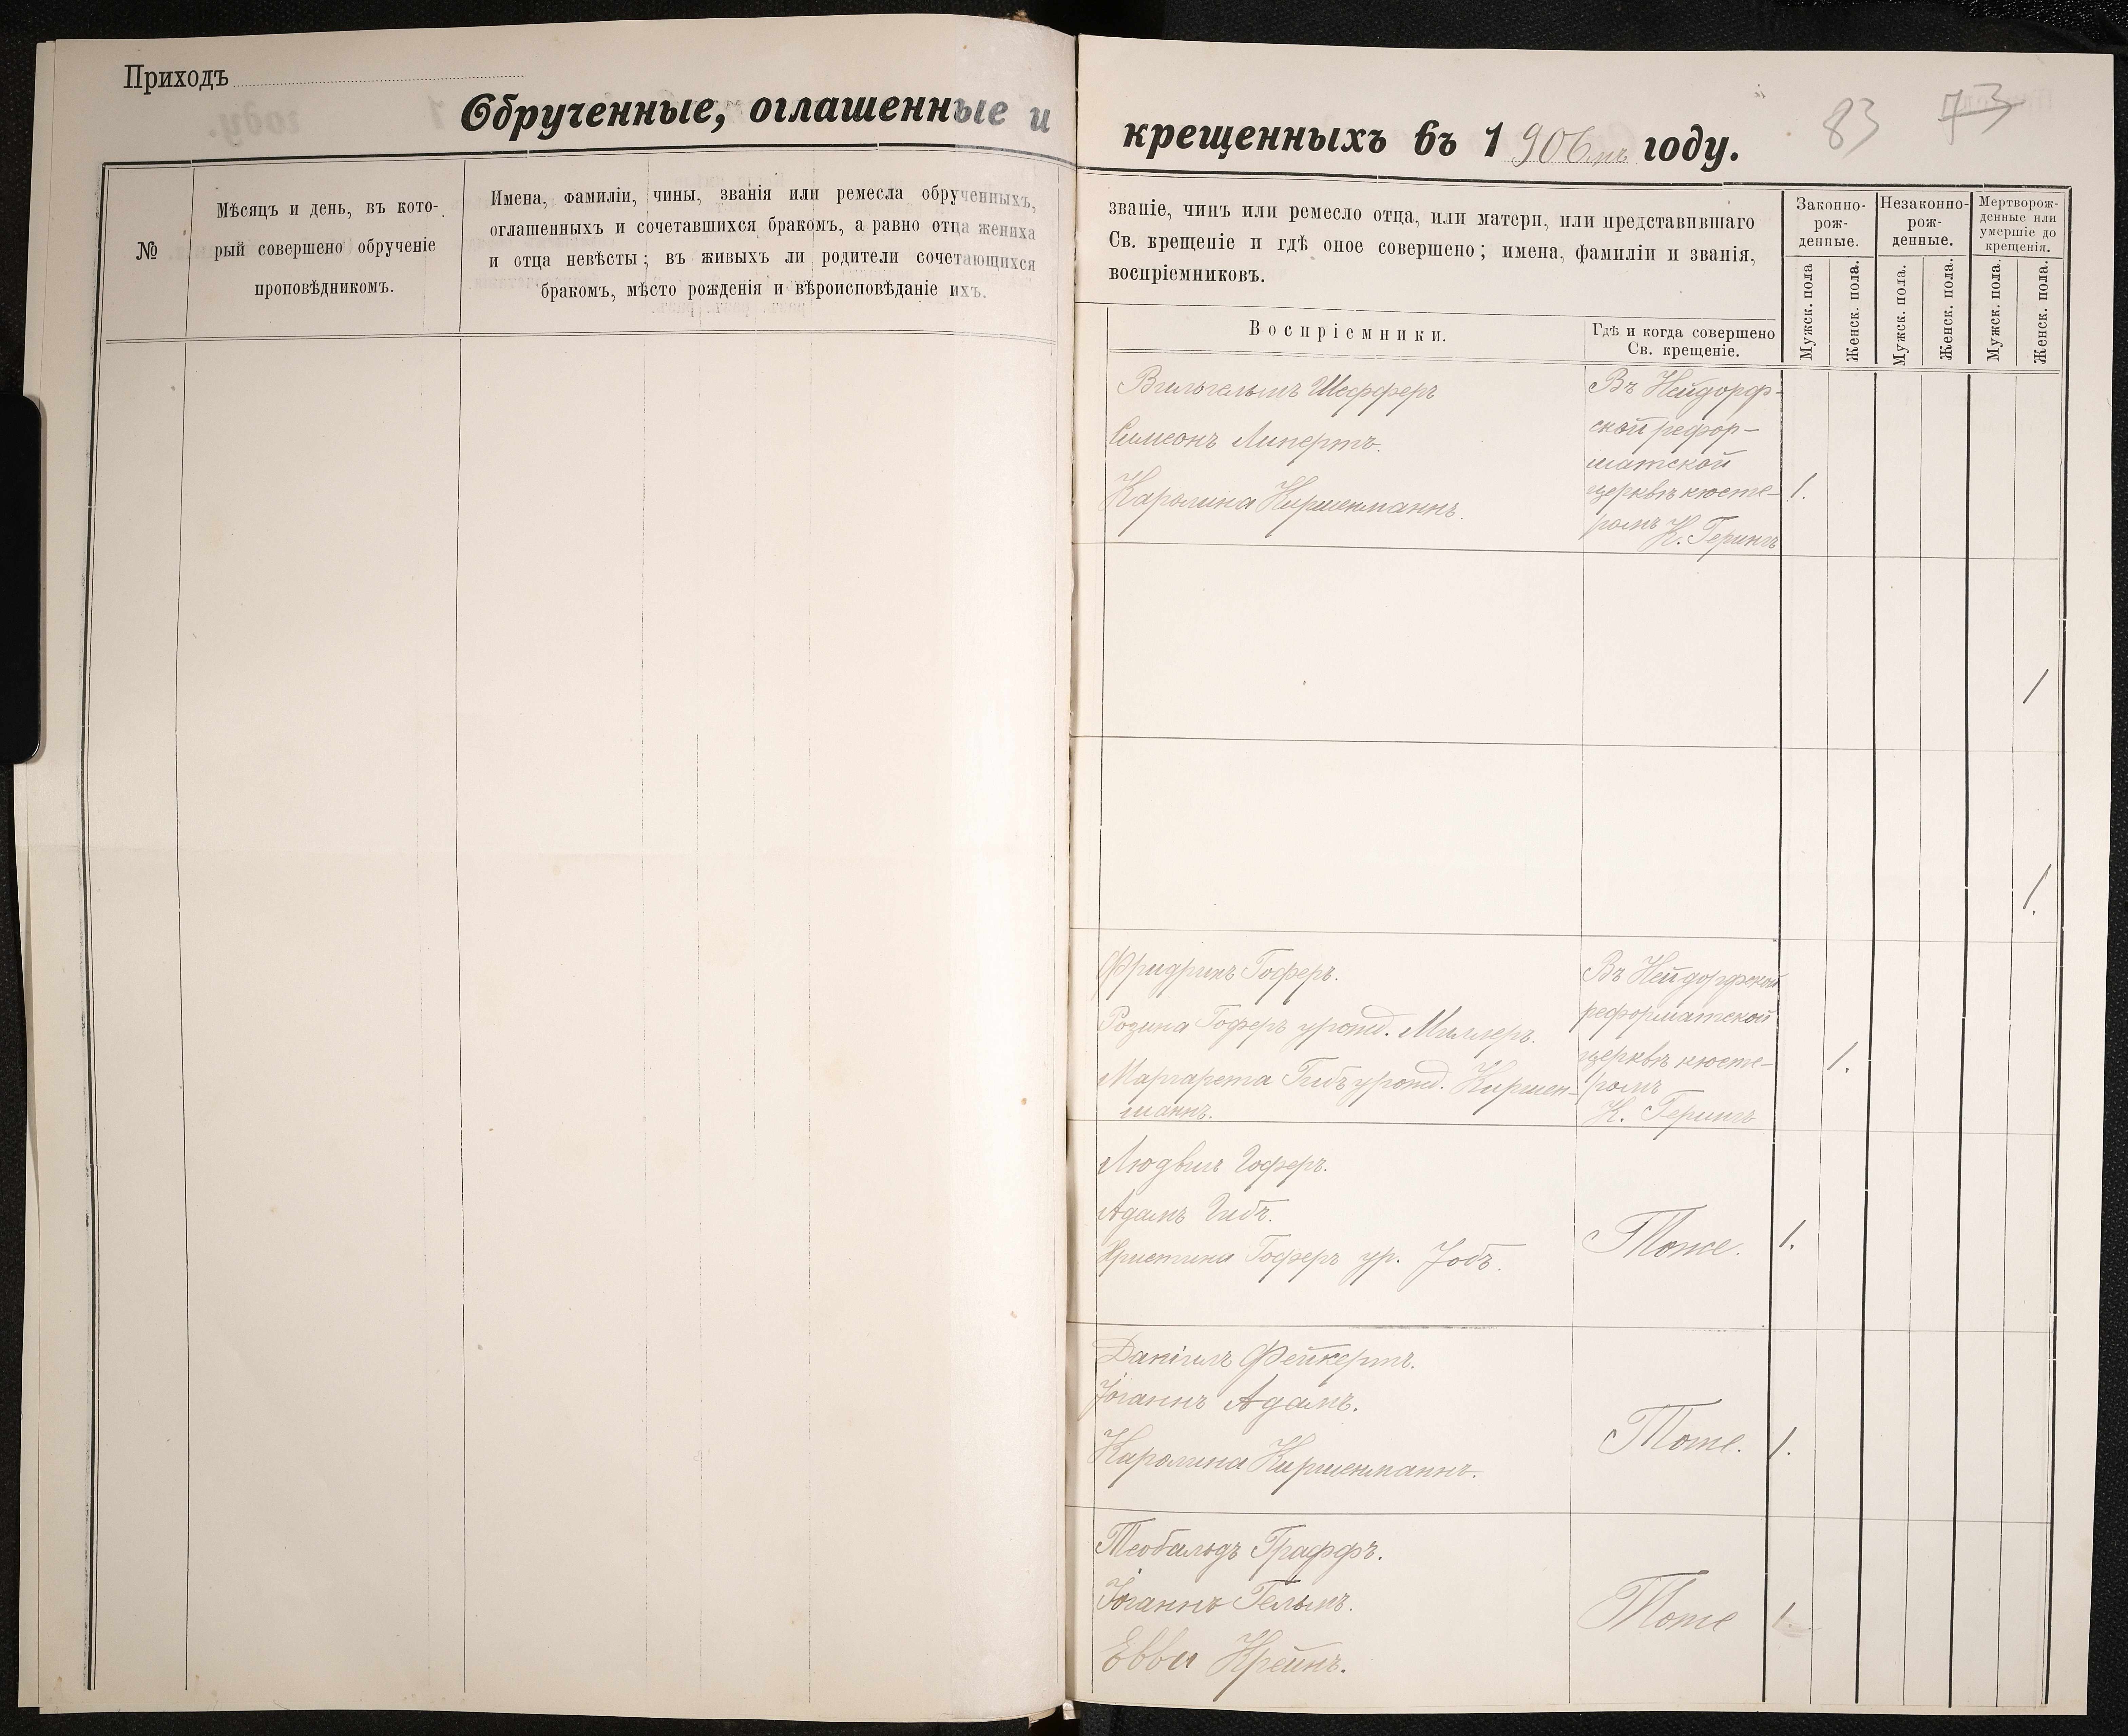 Приходъ
Обрученные, оглашенные и
№
Мѣсяцъ и день, въ кото-
рый совершено обрученіе
проповѣдникомъ.
Имена, фамиліи, чины, званія или ремесла обрученныхъ,
оглашенныхъ и сочетавшихся бракомъ, а равно отца жениха
и отца невѣсты; въ живыхъ ли родители сочетающихся
бракомъ, мѣсто рожденія и вѣроисповѣданіе ихъ.
крещенныхъ въ 1906мъ году.
83 73
званіе, чинъ или ремесло отца, или матери, или представившаго
Св. крещеніе и гдѣ оное совершено; имена, фамиліи и званія,
воспріемниковъ.
Воспріемники.
Гдѣ и когда совершено
Св. крещеніе.
Законно-
рож-
денные.
Незаконно-
рож-
денные.
Мертворож-
денные или
умершіе до
крещенія.
Мужск. пола
Женск. пола.
Мужск. пола.
Женск. пола.
Мужск. пола.
Женск. пола.
Вильгельмъ Шефферъ
Симеонъ Липертъ.
Каролина Киршенманнъ.
Въ Нейдорф-
ской рефор-
матской
церквѣ кюсте-
ромъ
К. Герингъ
1.
1
1.
Фридрихъ Гоферъ.
Розина Гоферъ урожд. Миллеръ.
Маргарета Гибъ урожд. Киршен-
маннъ.
Въ Нейдорфской
реформатской
церквѣ кюсте-
ромъ
К. Герингъ
1.
Людвигъ Гоферъ.
Адамъ Гибъ.
Христина Гоферъ ур. Іобъ.
Тоже.
1.
Даніилъ Фейкертъ.
Іоганнъ Адамъ.
Каролина Киршенманнъ.
Тоже.
1.
Теобальдъ Граффъ.
Іоганнъ Гельмъ.
Евва Крейнъ.
Тоже
1.